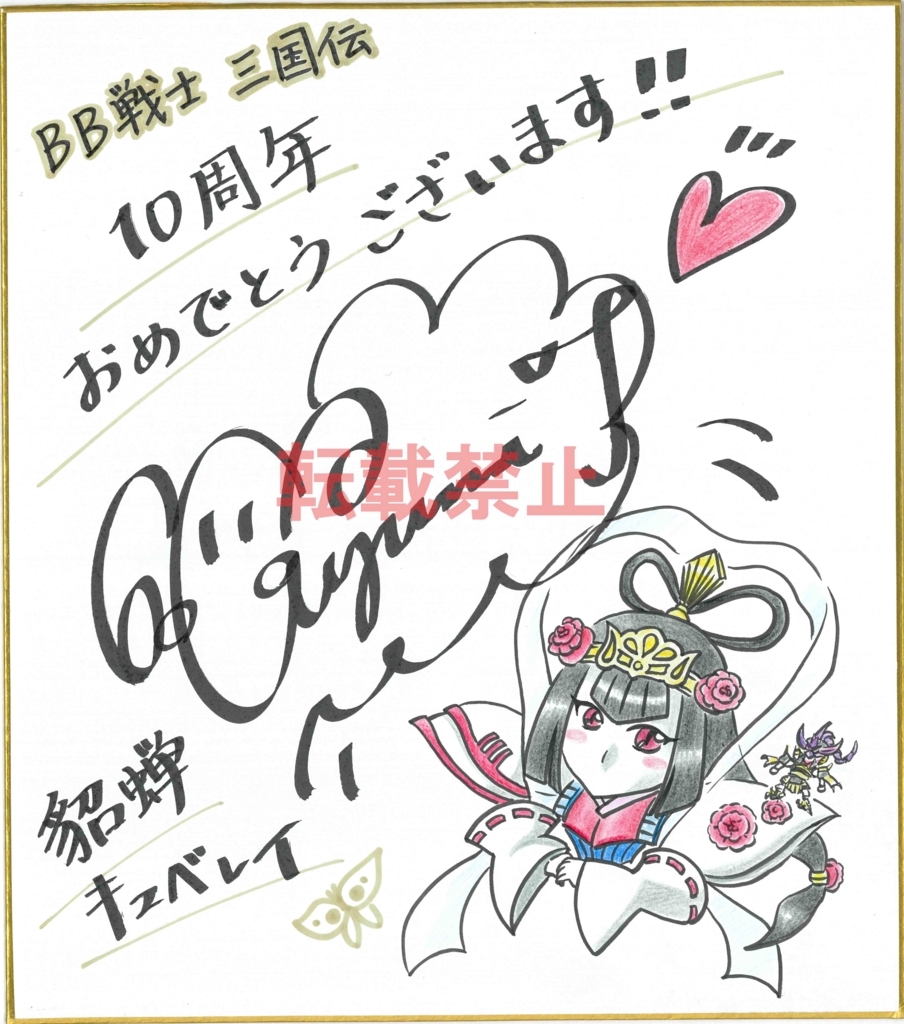 BB戦士 三国伝
10周年
おめでとうございます!!
Ayumi
転載禁止
貂蝉
キュベレイ